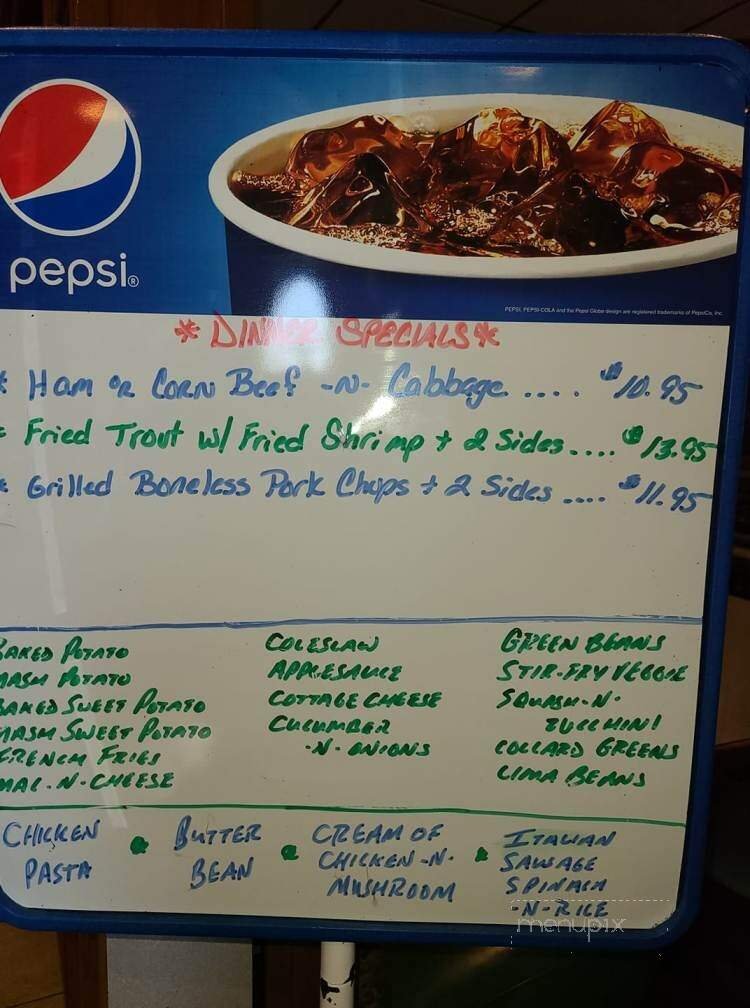 pepsi®
PEPSI, PEPSI-COLA and the Pepsi Globe design are registered trademarks of PepsiCo, Inc.
* DINNER SPECIALS *
* Ham or Corn Beef -N- Cabbage .... $10.95
* Fried Trout w/ Fried Shrimp + 2 Sides .... $13.95
* Grilled Boneless Pork Chops + 2 Sides .... $11.95
BAKED POTATO
MASH POTATO
BAKED SWEET POTATO
MASH SWEET POTATO
FRENCH FRIES
MAC-N-CHEESE
COLESLAW
APPLESAUCE
COTTAGE CHEESE
CUCUMBER
-N-ONIONS
GREEN BEANS
STIR-FRY VEGGIE
SQUASH-N-
ZUCCHINI
COLLARD GREENS
LIMA BEANS
CHICKEN
PASTA
BUTTER
BEAN
CREAM OF
CHICKEN-N-
MUSHROOM
ITALIAN
SAUSAGE
SPINACH
-N-RICE
menupix